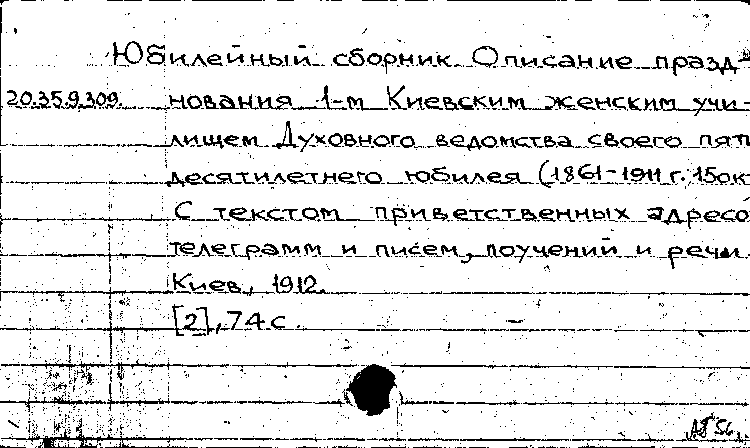 Юбилейный сборник. Описание празд-
20.35.9.309. нования 1-м Киевским женским учи-
лищем Духовного ведомства своего пят
десятилетнего юбилея (1861-1911 г. 15 ок
С текстом приветственных адресо
телеграмм и писем, поучений и речи
Киев, 1912.
[2], 74 с.